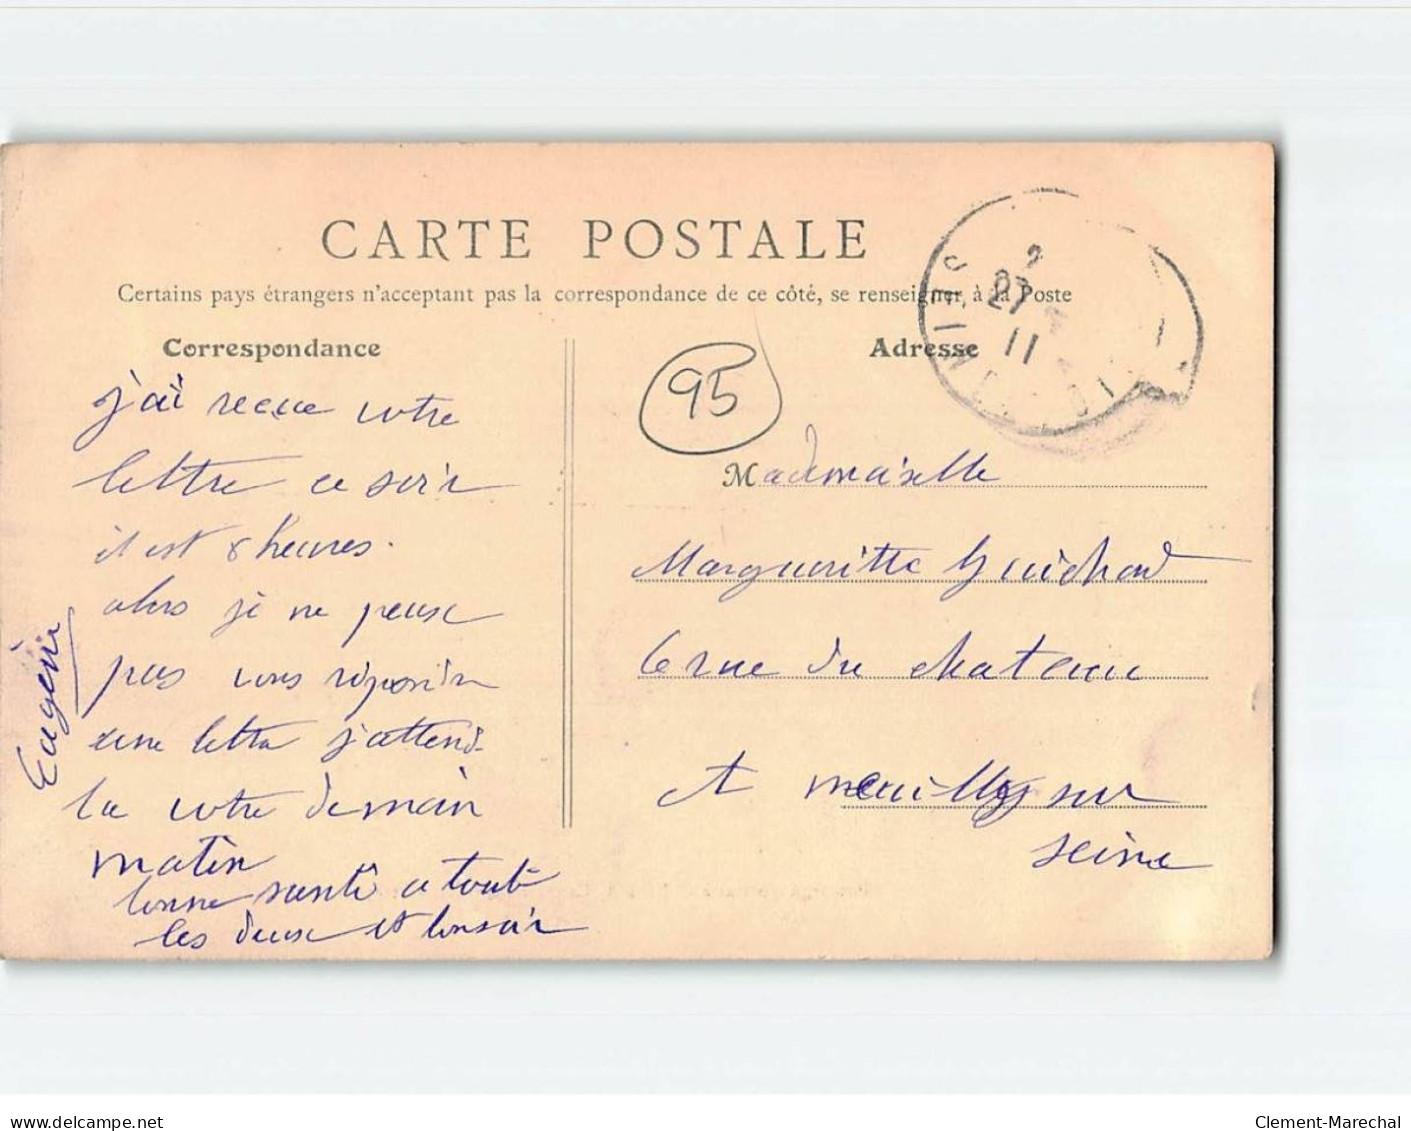 CARTE POSTALE
Certains pays étrangers n'acceptant pas la correspondance de ce côté, se renseigner à la Poste
Correspondance
j'ai recue votre
lettre ce soir
il est 8 heures.
alors je ne peuse
pas vous répondre
une lettre j'attend
la votre demain
matin
bonne santé a tout
les deux et bonsoir
Eugénie
Adresse
95
2
27
11
Mademoiselle
Margueritte Guichard
6 rue du chateau
A neuilly sur
seine
Clement-Marechal
www.delcampe.net